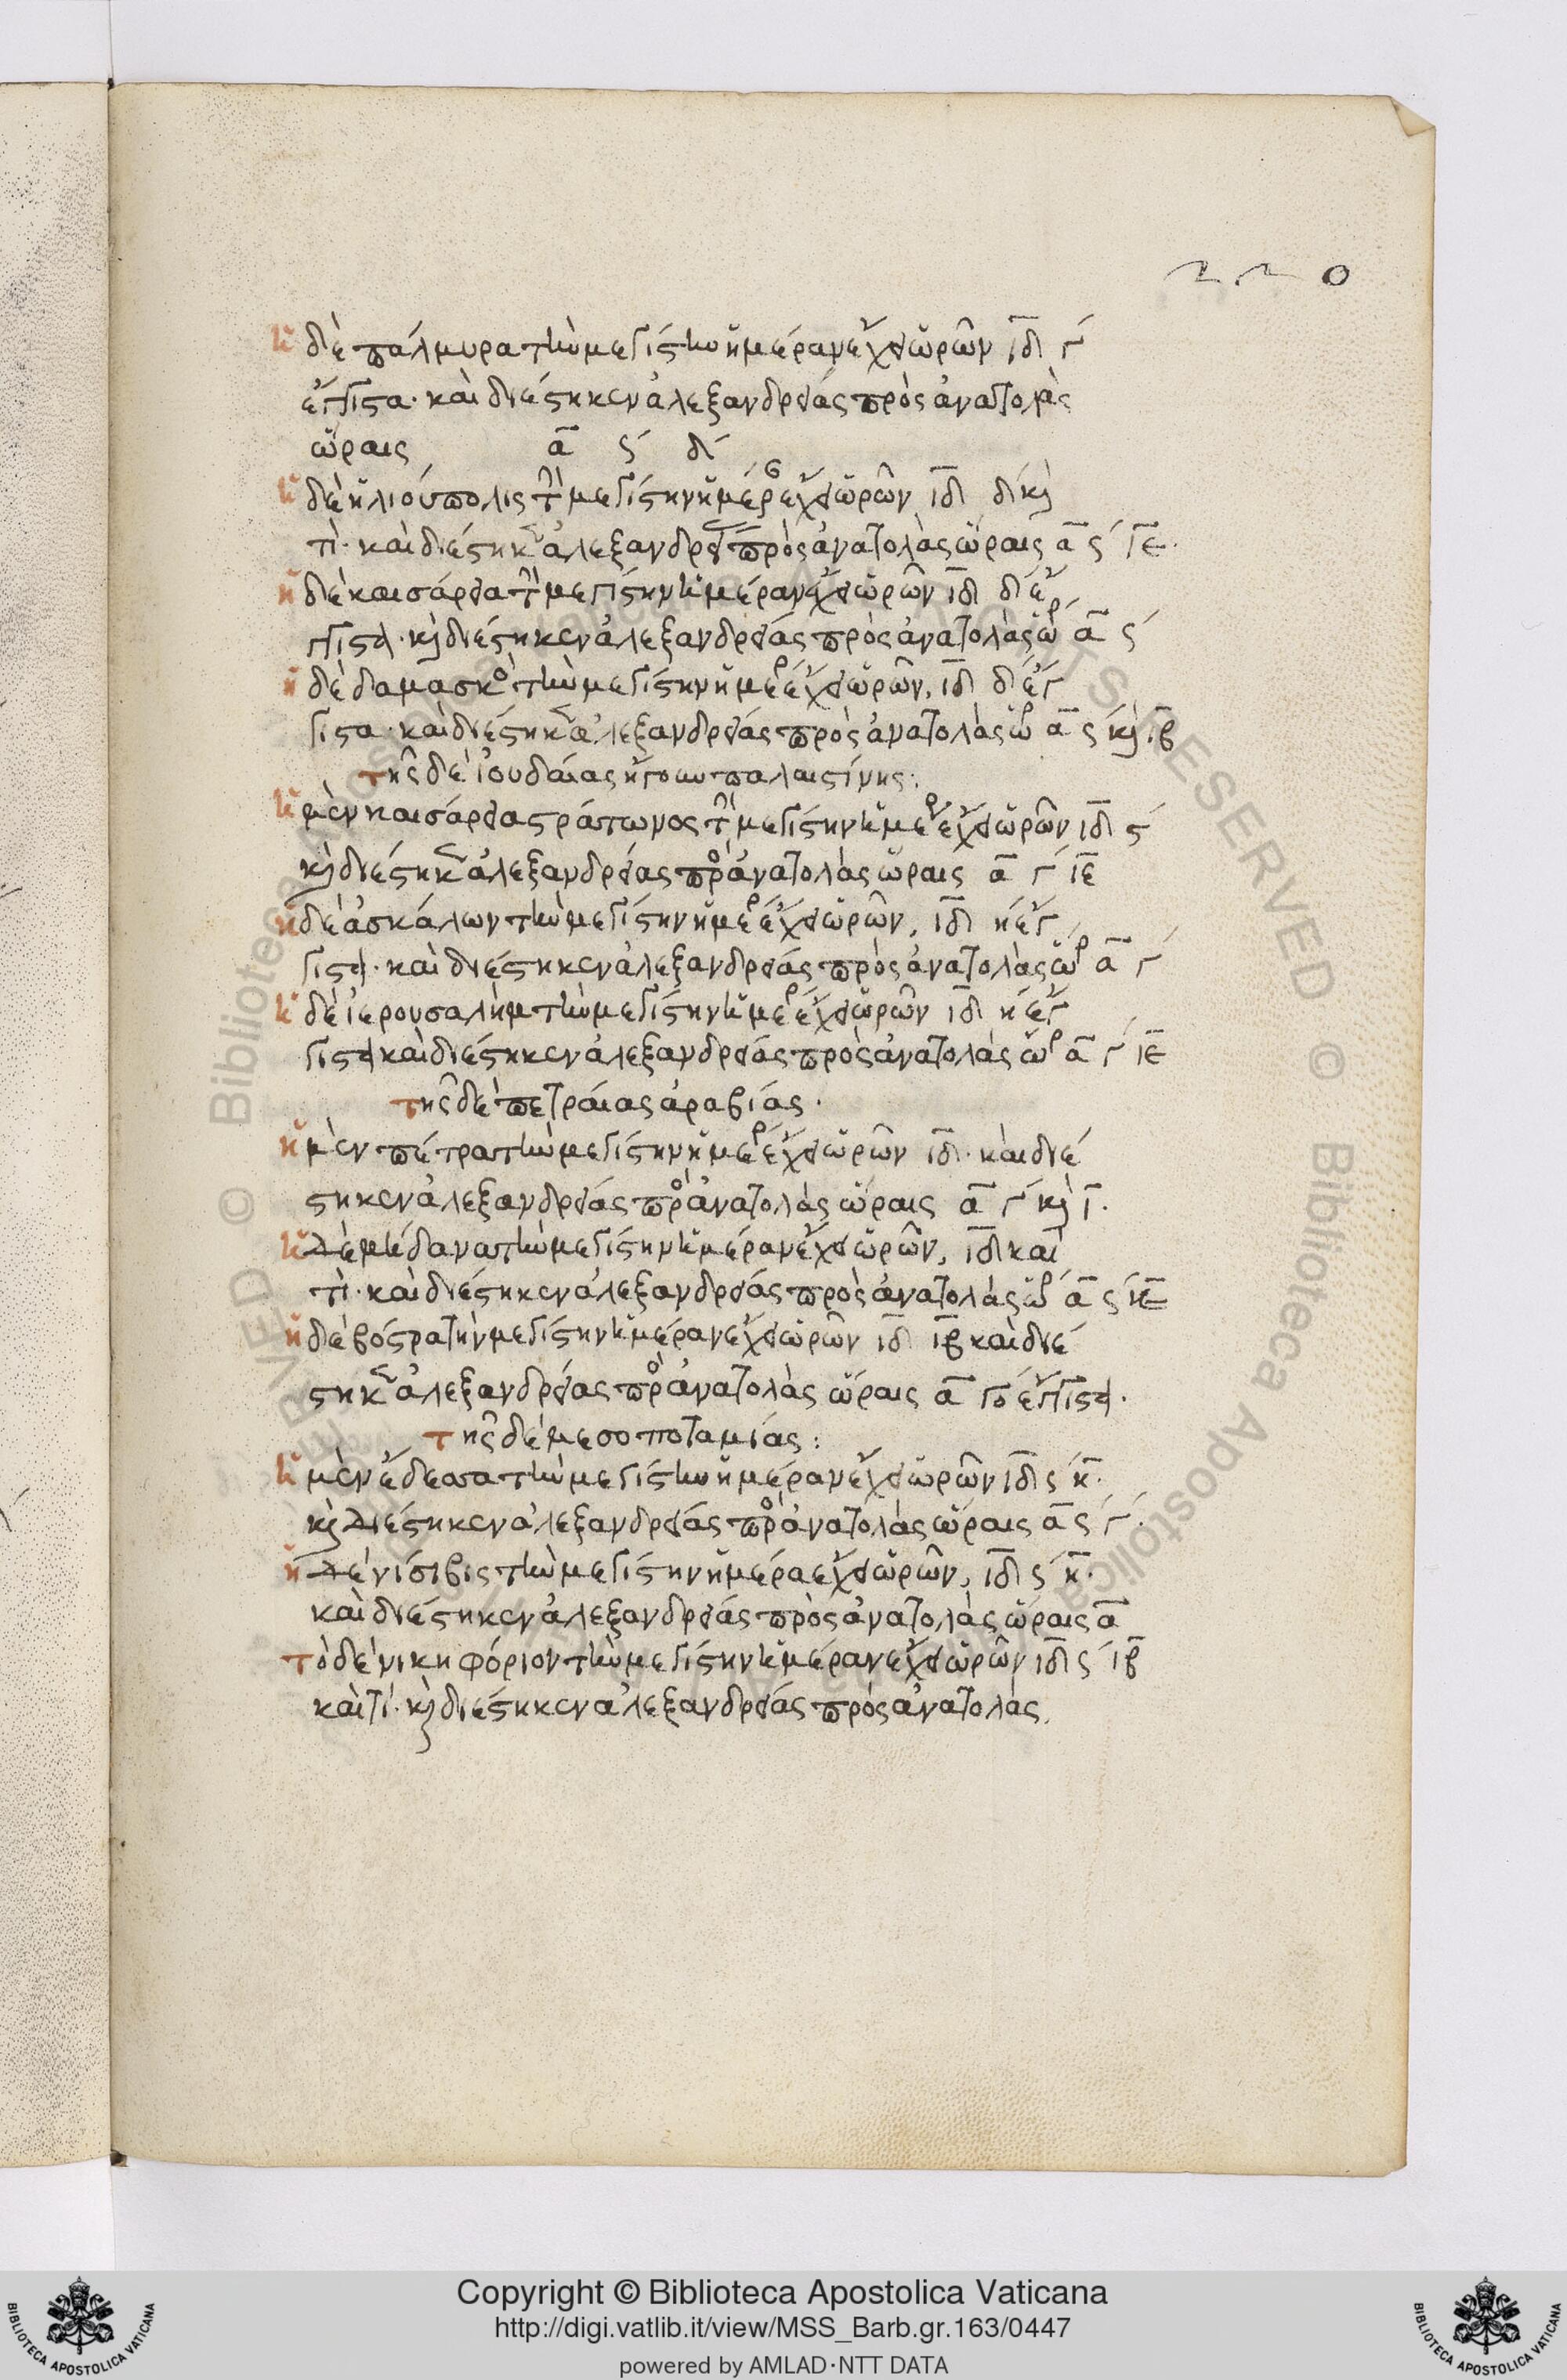 220
ἡ δὲ πάλμυρα τὴν μεγίστην ἡμέραν ἔχει ὡρῶν ιδ γ
ἔγγιστα· καὶ διέστηκεν ἀλεξανδρείας πρὸς ἀνατολὰς
ὥραις α ς δ
ἡ δὲ ἡλιούπολις τὴν μεγίστην ἡμέρ ἔχει ὡρῶν ιδ δ κ
τι· καὶ διέστηκ ἀλεξανδρεί πρὸς ἀνατολὰς ὥραις α ς ιε·
ἡ δὲ καισάρεια τὴν μεγίστην ἡμέραν ἔχει ὡρῶν ιδ δ ἔγ
γιστα· κ διέστηκεν ἀλεξανδρείας πρὸς ἀνατολὰς ὥρ α ς
ἡ δὲ δαμασκὸ τὴν μεγίστην ἡμέρ ἔχει ὡρῶν, ιδ δ ἔγ
γιστα· καὶ διέστηκ ἀλεξανδρείας πρὸς ἀνατολὰς ὥρ α ς κ ιβ
τῆς δὲ ἰουδαίας ἤγουν παλαιστίνης:
ἡ μὲν καισάρεια στράτωνος τὴν μεγίστην ἡμέρ ἔχει ὡρῶν ιδ ς
κ διέστηκ ἀλεξανδρείας πρὸ ἀνατολὰς ὥραις α γ ιε
ἡ δὲ ἀσκάλων τὴν μεγίστην ἡμέρ ἔχει ὡρῶν, ιδ η ἔγ
γιστ· καὶ διέστηκεν ἀλεξανδρείας πρὸς ἀνατολὰς ὥρ α γ
ἡ δὲ ἱερουσαλὴμ τὴν μεγίστην ἡμέρ ἔχει ὡρῶν ιδ η ἔγ
γιστ καὶ διέστηκεν ἀλεξανδρείας πρὸς ἀνατολὰς ὥρ α γ ιε
τῆς δὲ πετραίας ἀραβίας·
ἡ μὲν πέτρα τὴν μεγίστην ἡμέρ ἔχει ὡρῶν ιδ· καὶ διέ
στηκεν ἀλεξανδρείας πρὸ ἀνατολὰς ὥραις α γ κ ι·
ἡ δὲ μήδανα τὴν μεγίστην ἡμέραν ἔχει ὡρῶν, ιδ καί
τι· καὶ διέστηκεν ἀλεξανδρείας πρὸς ἀνατολὰς ὥρ α ς κε
ἡ δὲ βόστρα τὴν μεγίστην ἡμέραν ἔχει ὡρῶν ιδ ιβ καὶ διέ
στηκ ἀλεξανδρείας πρὸ ἀνατολὰς ὥραις α γο ἔγγιστ·
τῆς δὲ μεσοποταμίας:
ἡ μὲν ἔδεσσα τὴν μεγίστην ἡμέραν ἔχει ὡρῶν ιδ ς κ·
κ διέστηκεν ἀλεξανδρείας πρὸ ἀνατολὰς ὥραις α ς γ·
ἡ δὲ νίσιβις τὴν μεγίστην ἡμέρα ἔχει ὡρῶν, ιδ ς κ·
καὶ διέστηκεν ἀλεξανδρείας πρὸς ἀνατολὰς ὥραις α
τὸ δὲ νικηφόριον τὴν μεγίστην ἡμέραν ἔχει ὡρῶν ιδ ς ιβ
καί τι· κ διέστηκεν ἀλεξανδρείας πρὸς ἀνατολὰς,
Copyright © Biblioteca Apostolica Vaticana
http://digi.vatlib.it/view/MSS_Barb.gr.163/0447
powered by AMLAD·NTT DATA